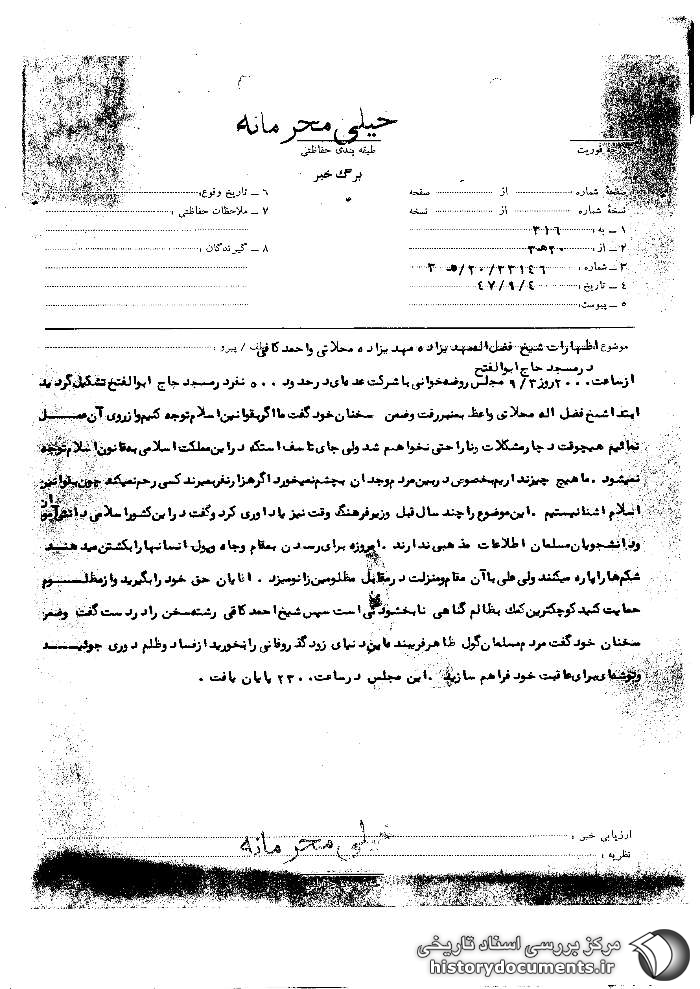 خیلی محرمانه
طبقه بندی حفاظتی
درجه فوریت
برگ خبر
نسخه شماره از صفحه
نسخه شماره از نسخه
۱ ــ به : ۳۱۶
۲ ــ از : ۲۰ه۳
۳ ــ شماره : ۲۳۱۴۶/۲۰ه۳
۴ ــ تاریخ : ۴۷/۹/۴
۵ ــ پیوست
۶ ــ تاریخ وقوع :
۷ ــ ملاحظات حفاظتی :
۸ ــ گیرندگان :
موضوع : اظهارات شیخ فضل اله مهدیزاده مهدیزاده محلاتی واحمد کافی / پیرو :
درمسجد حاج ابوالفتح
ازساعت ۲۰۰۰ روز ۹/۳ مجلس روضه خوانی با شرکت عده‌ای درحدود ۵۰۰ نفر درمسجد حاج ابوالفتح تشکیل گردید
ابتدا شیخ فضل اله محلاتی واعظ بمنبر رفت وضمن سخنان خود گفت ما اگر بقوانین اسلام توجه کنیم و از روی آن عمل
نمائیم هیچوقت دچار مشکلات و ناراحتی نخواهیم شد ولی جای تاسف است که در این مملکت اسلامی به قانون اسلام توجه
نمیشود . ما هیچ چیز نداریم بخصوص دربین مردم وجدان بچشم نمیخورد اگر هزار نفر بمیرند کسی رحم نمیکند چون بقوانین
اسلام آشنا نیستیم . این موضوع را چند سال قبل وزیر فرهنگ وقت نیز یادآوری کرد وگفت در این کشور اسلامی دانش‌آموزان
ودانشجویان مسلمان اطلاعات مذهبی ندارند . امروزه برای رسیدن به مقام وجاه وپول انسانها را بکشتن میدهند
شکمها را پاره میکنند ولی علی با آن مقام ومنزلت در مقابل مظلومین زانو میزد . آقایان حق خود را بگیرید واز مظلوم
حمایت کنید کوچکترین کمک بظالم گناهی نابخشودنی است سپس شیخ احمد کافی رشته سخن را در دست گفت وضمن
سخنان خود گفت مردم مسلمان گول ظاهر فریبنده این دنیای زودگذر وفانی را نخورید از فساد وظلم دوری جوئید
وتوشه‌ای برای عاقبت خود فراهم سازید . این مجلس درساعت ۲۳۰۰ پایان یافت .
ارزیابی خبر :
نظریه :
خیلی محرمانه
مرکز بررسی اسناد تاریخی
historydocuments.ir